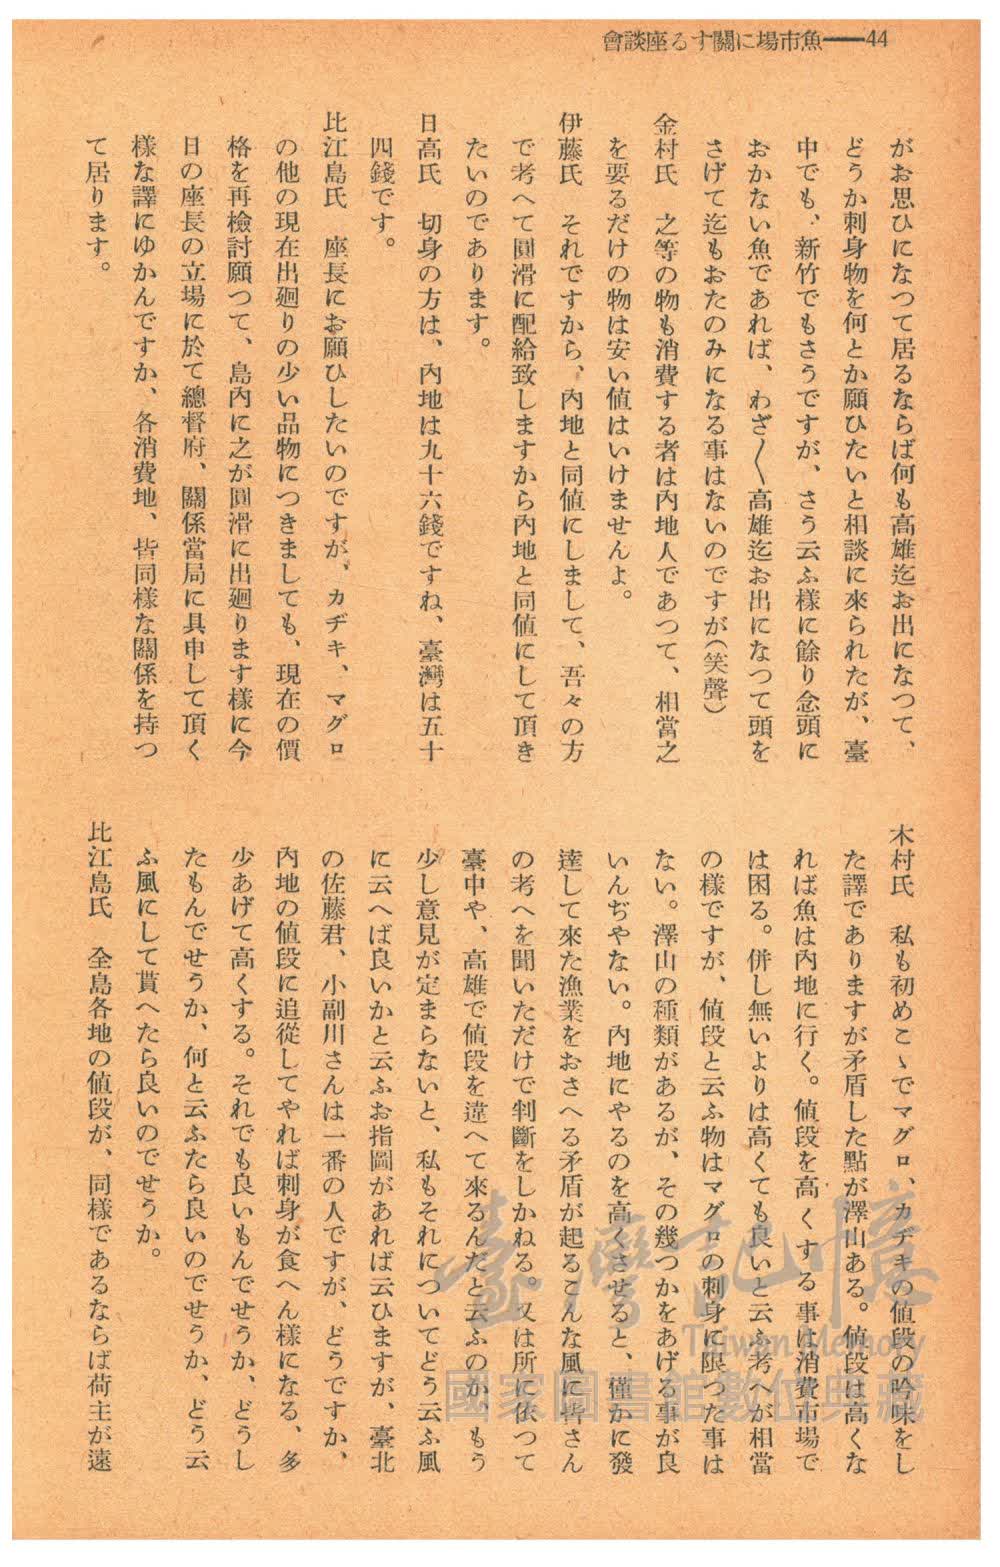 會談座るす關に場市魚――44
がお思ひになつて居るならば何も高雄迄お出になつて、
どうか刺身物を何とか願ひたいと相談に來られたが、臺
中でも、新竹でもさうですが、さう云ふ樣に餘り念頭に
おかない魚であれば、わざ〳〵高雄迄お出になつて頭を
さげて迄もおたのみになる事はないのですが(笑聲)
金村氏　之等の物も消費する者は內地人であつて、相當之
を要るだけの物は安い値はいけませんよ。
伊藤氏　それですから、內地と同値にしまして、吾々の方
で考へて圓滑に配給致しますから內地と同値にして頂き
たいのであります。
日高氏　切身の方は、內地は九十六錢ですね、臺灣は五十
四錢です。
比江島氏　座長にお願ひしたいのですが、カヂキ、マグロ
の他の現在出廻りの少い品物につきましても、現在の價
格を再檢討願つて、島內に之が圓滑に出廻ります樣に今
日の座長の立場に於て總督府、關係當局に具申して頂く
樣な譯にゆかんですか、各消費地、皆同樣な關係を持つ
て居ります。
木村氏　私も初めこゝでマグロ、カヂキの値段の吟味をし
た譯でありますが矛盾した點が澤山ある。値段は高くな
れば魚は內地に行く。値段を高くする事は消費市場で
は困る。併し無いよりは高くても良いと云ふ考へが相當
の樣ですが、値段と云ふ物はマグロの刺身に限つた事は
ない。澤山の種類があるが、その幾つかをあげる事が良
いんぢやない。內地にやるのを高くさせると、僅かに發
達して來た漁業をおさへる矛盾が起るこんな風に皆さん
の考へを聞いただけで判斷をしかねる。又は所に依つて
臺中や、高雄で値段を違へて來るんだと云ふのか、もう
少し意見が定まらないと、私もそれについてどう云ふ風
に云へば良いかと云ふお指圖があれば云ひますが、臺北
の佐藤君、小副川さんは一番の人ですが、どうですか、
內地の値段に追從してやれば刺身が食へん樣になる、多
少あげて高くする。それでも良いもんでせうか、どうし
たもんでせうか、何と云ふたら良いのでせうか、どう云
ふ風にして貰へたら良いのでせうか。
比江島氏　全島各地の値段が、同樣であるならば荷主が遠
臺灣記憶
Taiwan Memory
國家圖書館數位典藏